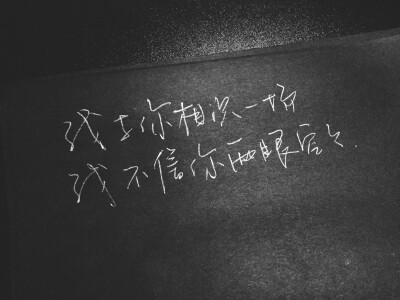 我与你相识一场
我不信你两眼空空.